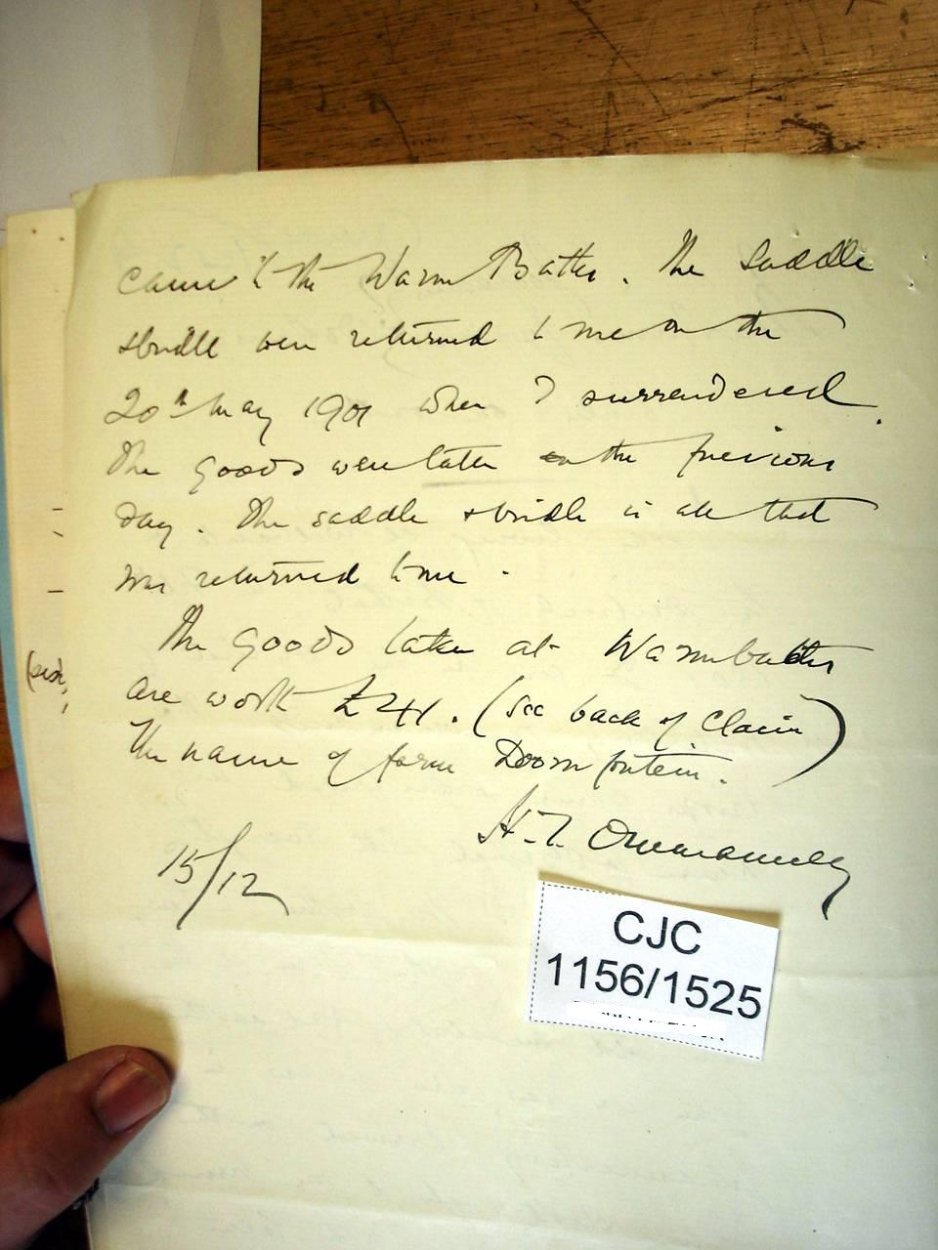 came to the Warm Baths. The Saddle
& bridle were returned to me on the
20th May 1901 when I surrendered.
The goods were taken on the previous
day. The saddle & bridle is all that
was returned to me.
The goods taken at Warmbaths
are worth £41. (See back of Claim)
The name of farm Doornfontein.
H.T. Ommanney
15/12
CJC
1156/1525